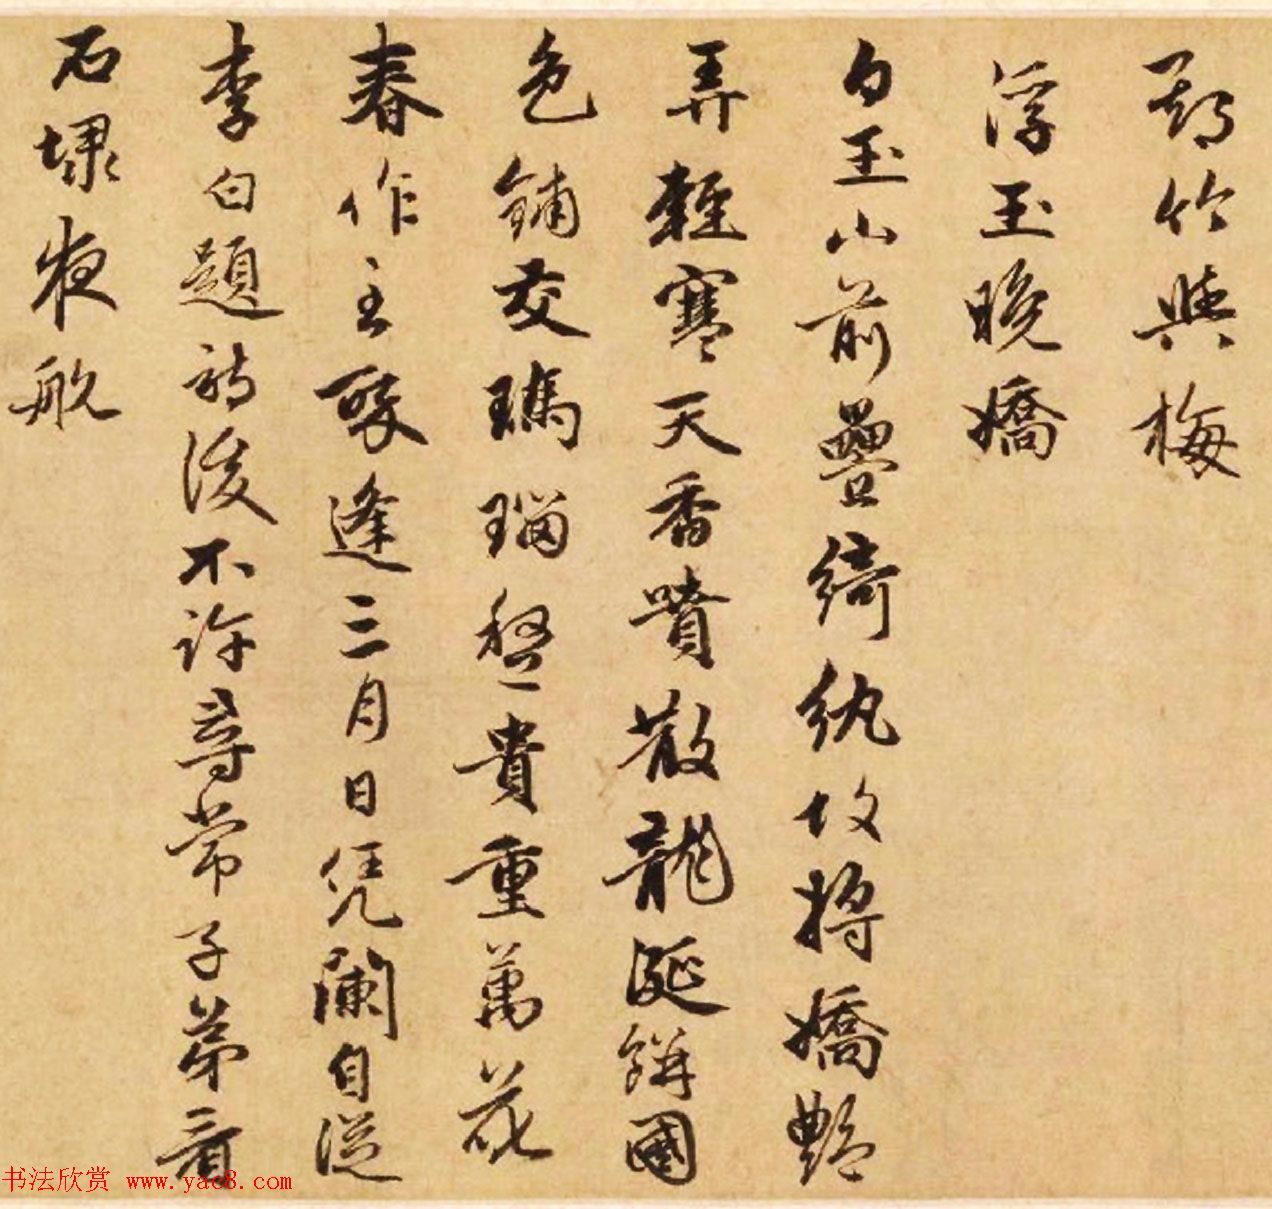 歌竹與梅
浮玉晚嬌
白玉山前疊綺紈故將嬌艷
弄輕寒天香噴散龍涎餅國
色鋪交瑪瑙盤貴重萬花
春作主繁逢三月日凭闌自從
李白題詩後不許尋常子弟看
石埭夜航
书法欣赏 www.yac8.com